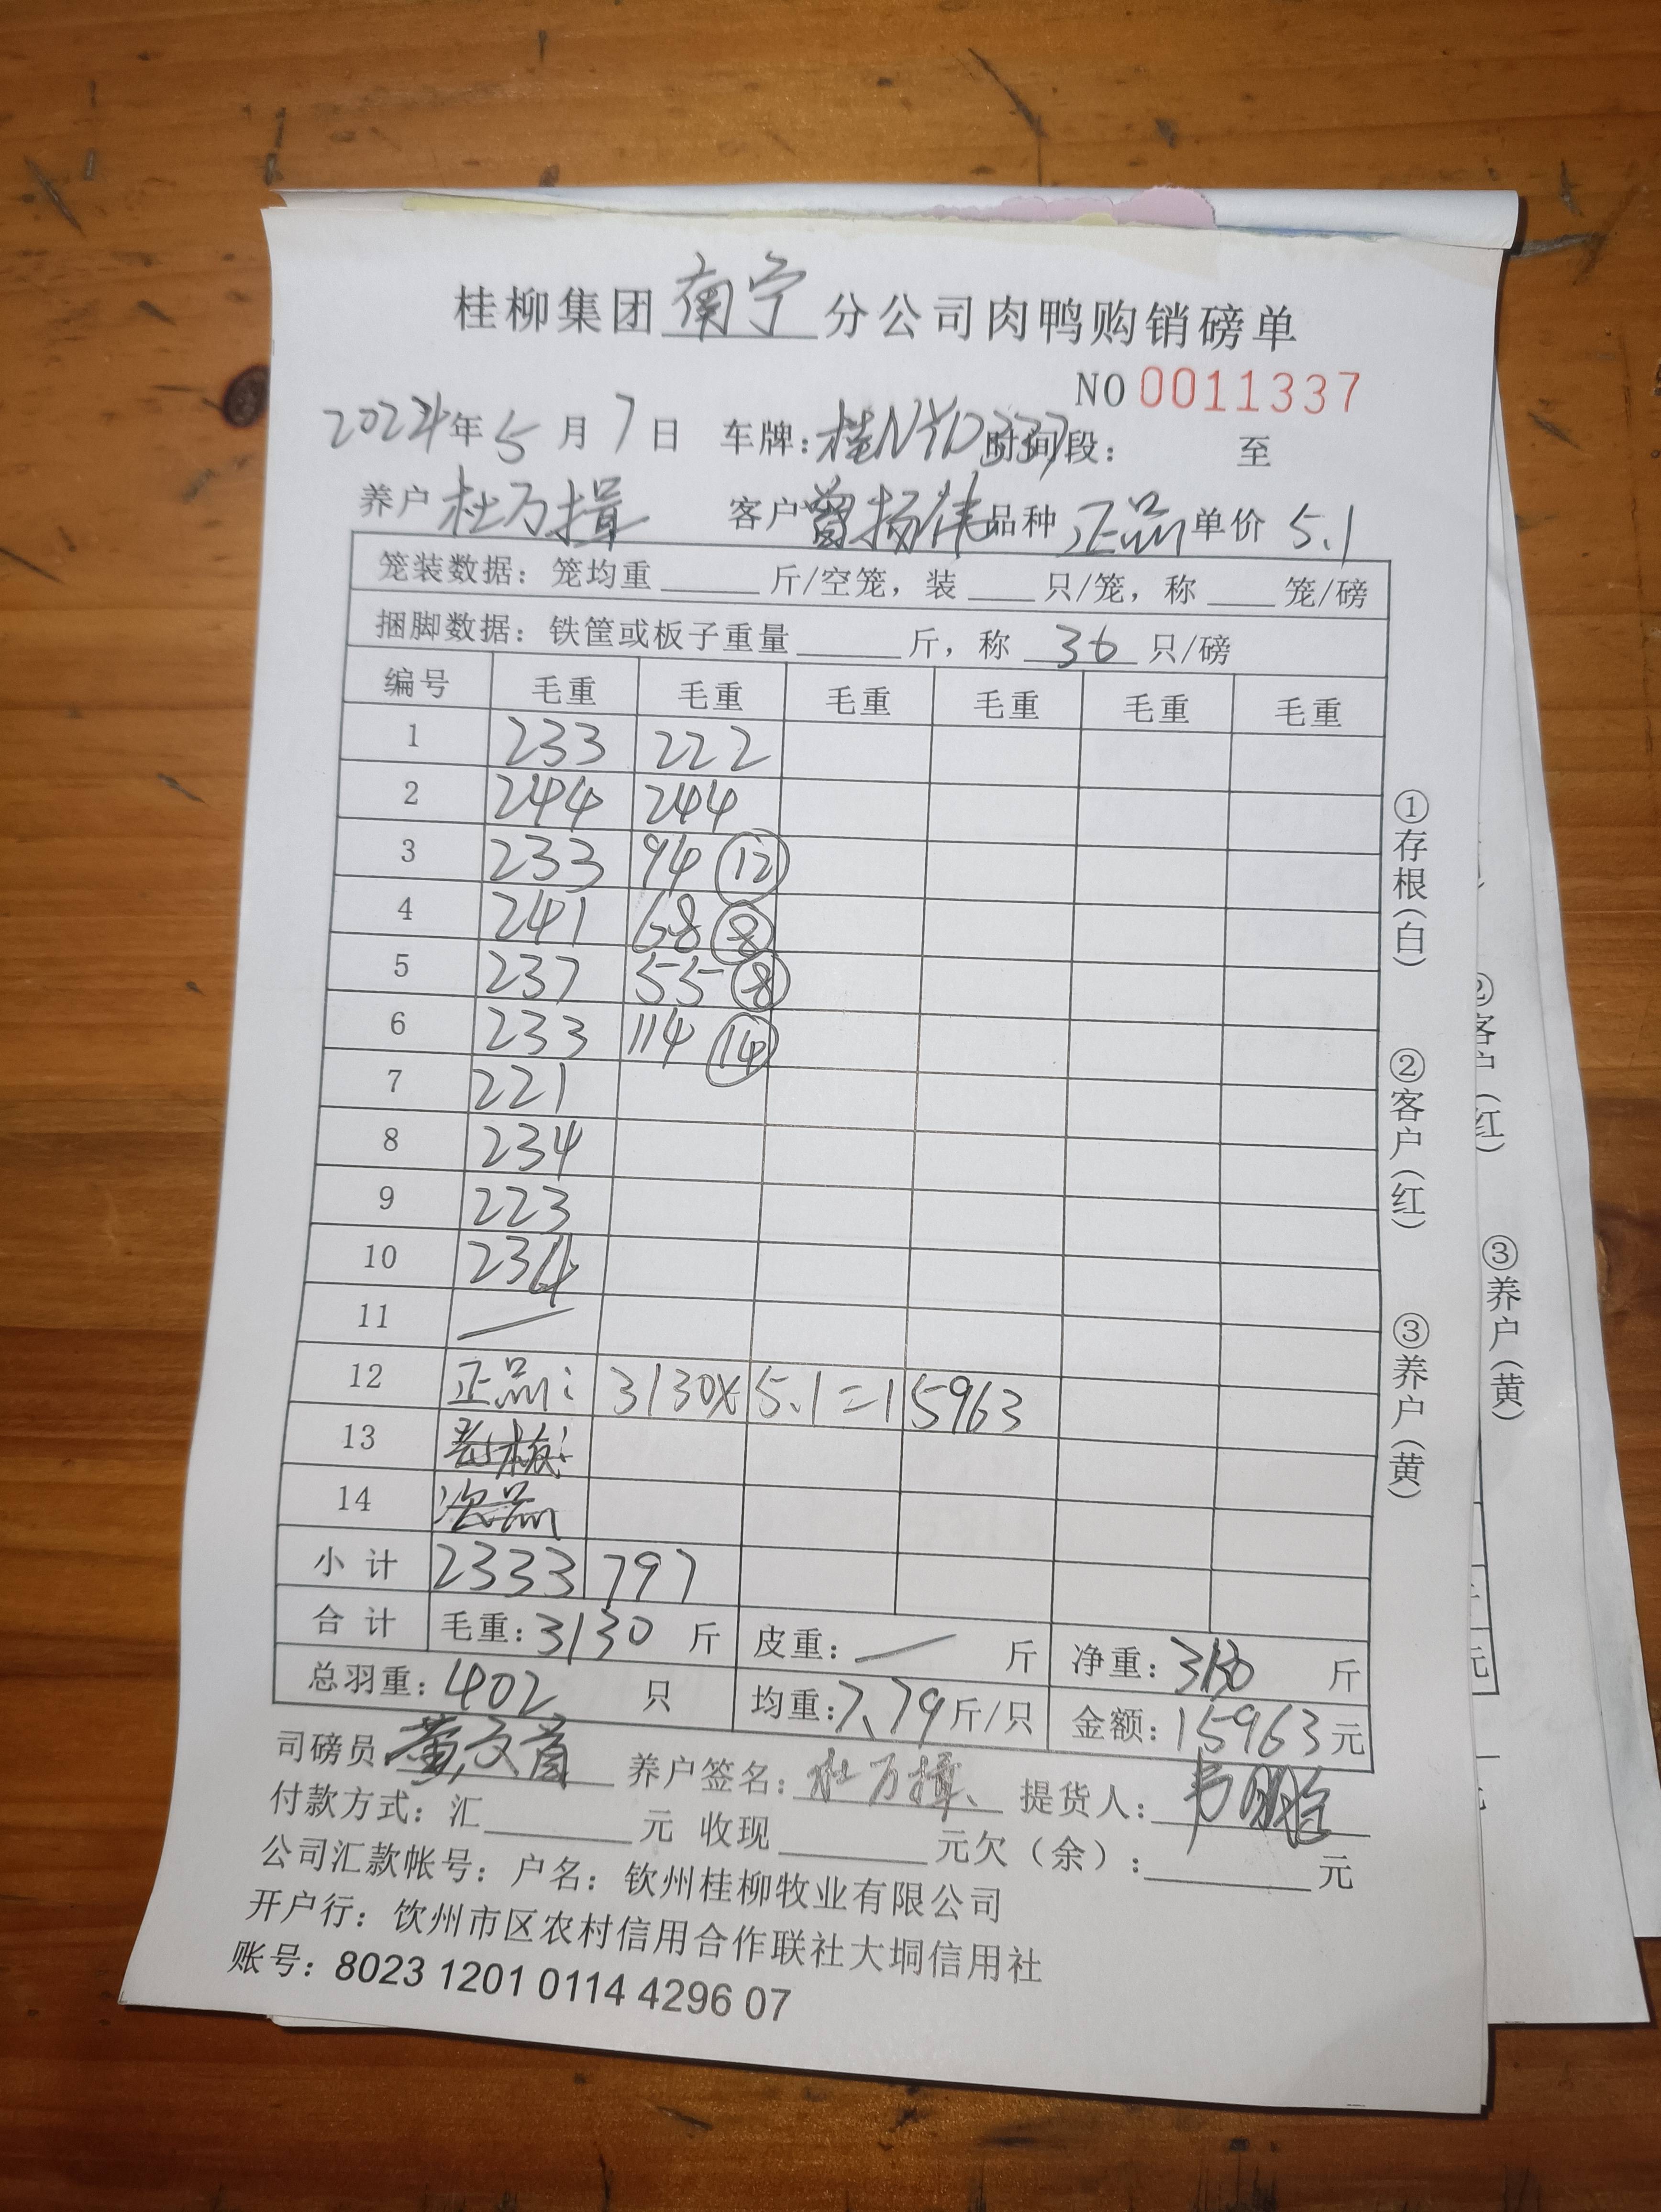 桂柳集团南宁分公司肉鸭购销磅单
NO 0011337
2024年5月7日 车牌：桂NYD337 时间段： 至
养户 杜万揖 客户 曾扬伟 品种 正品 单价 5.1
笼装数据：笼均重 斤/空笼，装 只/笼，称 笼/磅
捆脚数据：铁筐或板子重量 斤，称 36 只/磅
编号 毛重 毛重 毛重 毛重 毛重 毛重
1 233 222
2 244 244
3 233 94 ⑫
4 241 68 ⑧
5 237 55 ⑧
6 233 114 ⑭
7 221
8 234
9 223
10 234
11 —
12 正品：3130×5.1=15963
13
14 次品
小计 2333 797
合计 毛重：3130 斤 皮重：— 斤 净重：3130 斤
总羽重：402 只 均重：7.79斤/只 金额：15963元
司磅员 黄文首 养户签名：杜万揖 提货人：
付款方式：汇 元 收现 元欠（余）： 元
公司汇款帐号：户名：钦州桂柳牧业有限公司
开户行：钦州市区农村信用合作联社大垌信用社
账号：8023 1201 0114 4296 07
①存根（白）
②客户（红）
③养户（黄）
②客户（红）
③养户（黄）
元